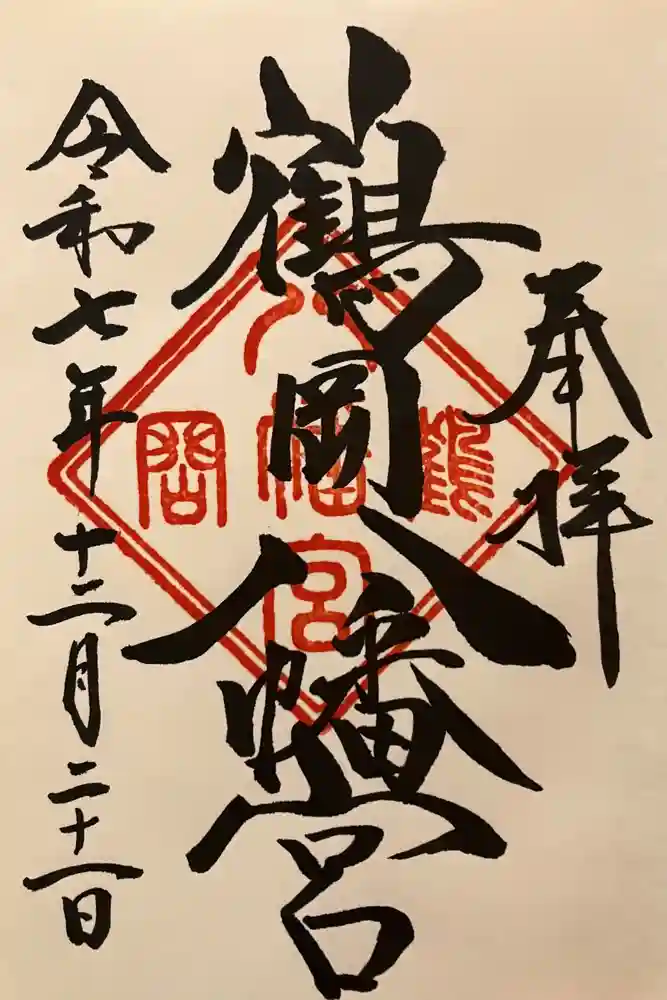 奉拝
鶴岡八幡宮
令和七年十二月二十一日
鶴
八
幡
宮
岡